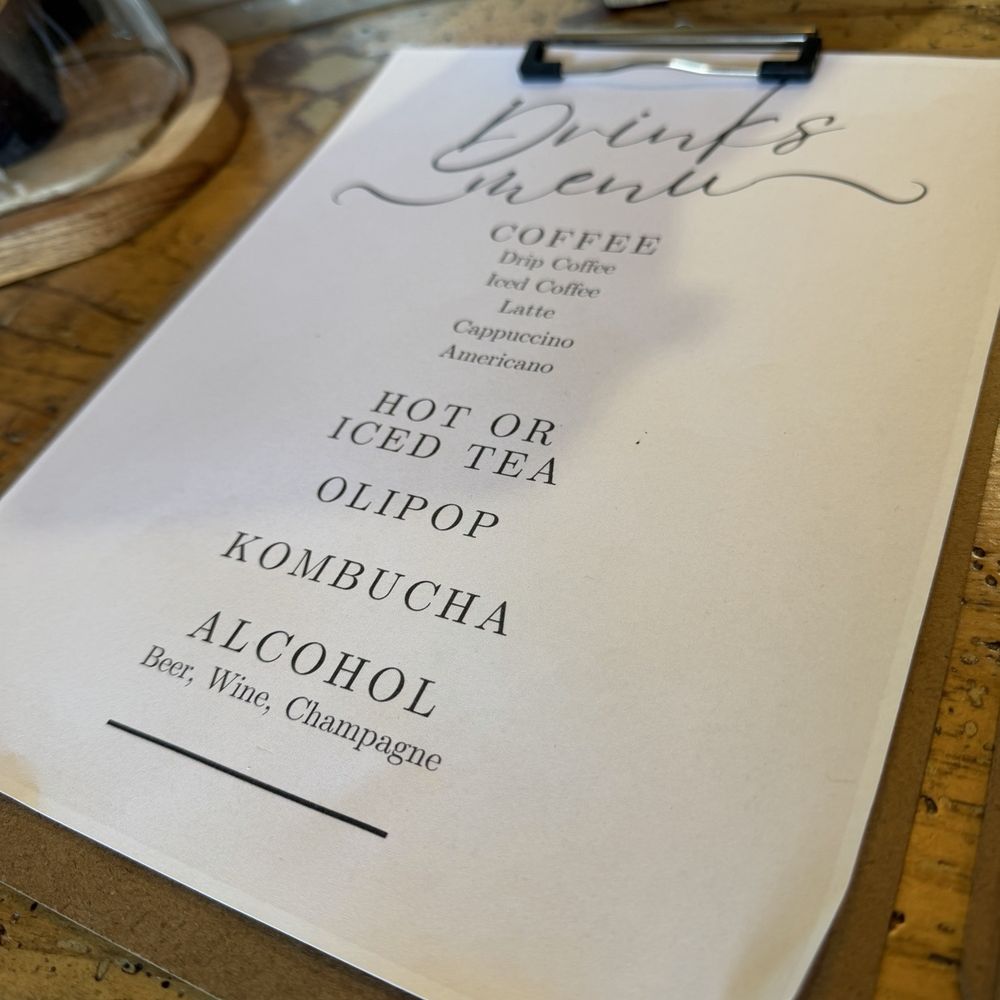 Drinks
menu
COFFEE
Drip Coffee
Iced Coffee
Latte
Cappuccino
Americano
HOT OR
ICED TEA
OLIPOP
KOMBUCHA
ALCOHOL
Beer, Wine, Champagne